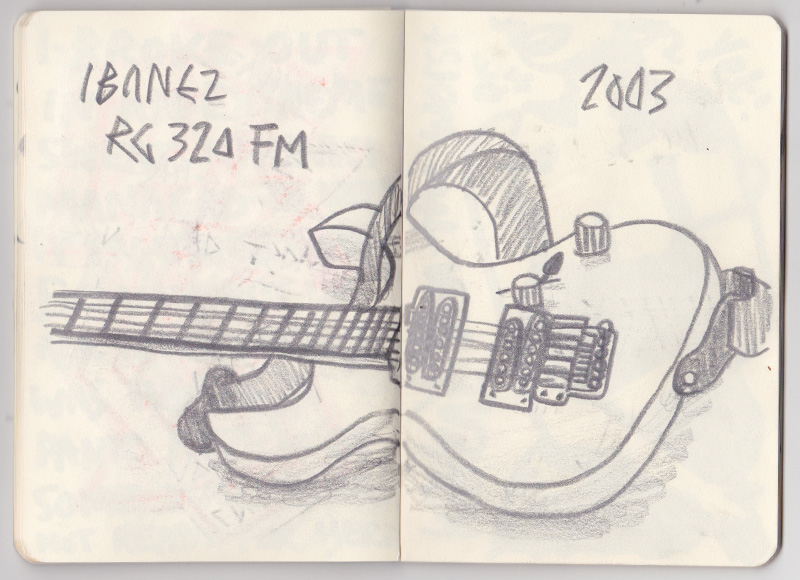 IBANEZ
RG 320 FM
2003